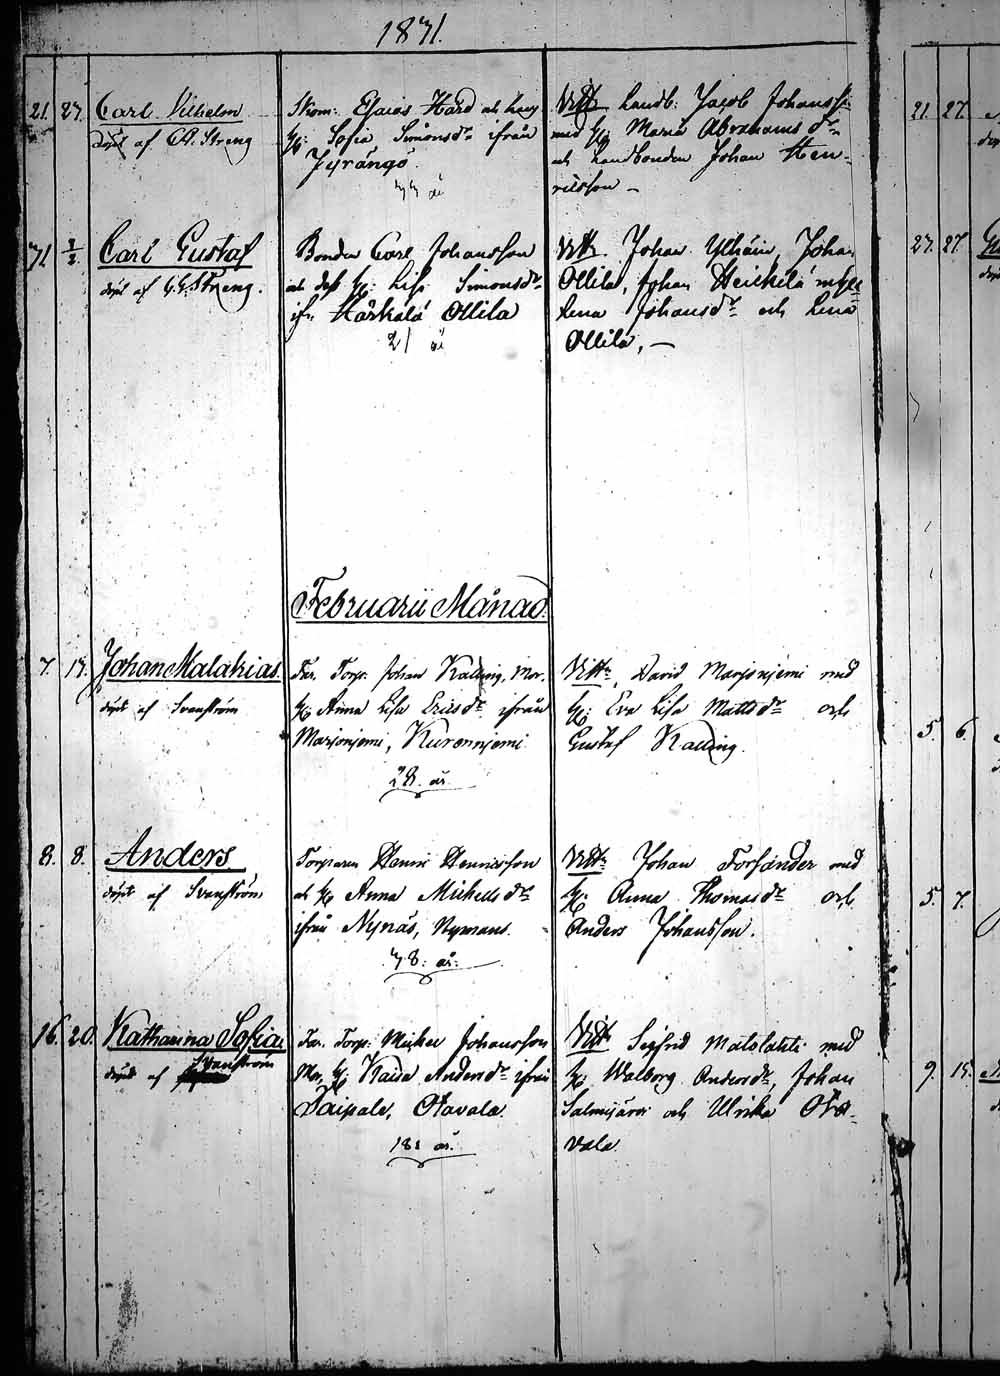 1871.
21. 27. Carl Vilhelm
döpt af C. A. Streng
Skom: Esaias Hård och hans
h: Sofia Simonsdr ifrån
Jyrängö
Vittn Landb: Jacob Johansson
med h: Maria Abrahamsdr
och Landbonden Johan Hen-
ricsson –
Carl Gustaf
döpt af G. G. Streng.
Bonden Carl Johansson
och dess h: Lisa Simonsdr
ifr. Härkälä Ollila
21 år
Vittn Johan Johan
Ollila, Johan Heickilä
Lena Johansdr och Lena
Ollila, –
Februarii Månad.
7. Johan Malakias.
döpt af Svanström
Far. Torp. Johan Kalling, Mor.
h: Anna Lisa Ericsdr ifrån
Marjoniemi, Kurenniemi
28. år
Vittn, David Marjoniemi med
h: Eva Lisa Mattsdr och
Gustaf Kalling.
8. 8. Anders.
döpt af Svanström
Torparen Henric Henricsson
och h: Anna Michelsdr
ifrån Nynäs, Nymans.
år.
Vittn Johan Forsander med
h: Anna Thomasdr och
Anders Johansson.
16. 20. Katharina Sofia
döpt af Svanström
Far. Torp. Mickel Johansson
Mor, h: Kaisa Andersdr ifrån
Taipale, Otavala.
år.
Vittn Sigfrid Matolahti med
h: Walborg Andersdr, Johan
Salmijärvi och Ulrika Ota-
vala.
21. 27.
27. 27
5. 6.
5. 7.
9. 15.